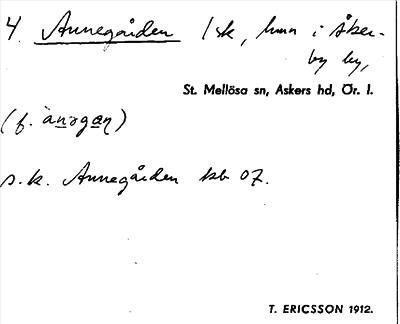 4. Annegården 1 sk, hmn i Åker-
by by,
St. Mellösa sn, Askers hd, Ör. l.
(f. ànərgaṇ)
s.k. Annegården kb 07.
T. ERICSSON 1912.